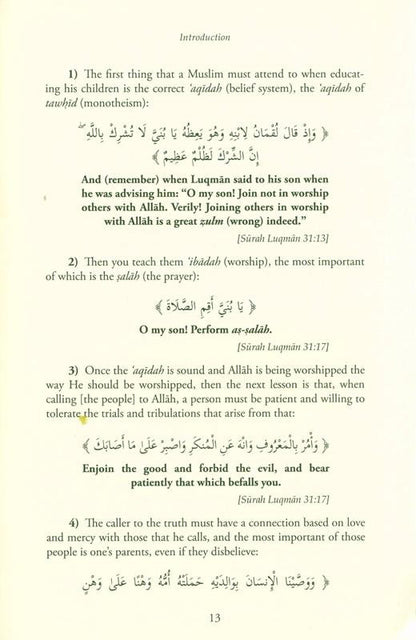 Introduction
1) The first thing that a Muslim must attend to when educat-
ing his children is the correct ʿaqīdah (belief system), the ʿaqīdah of
tawḥīd (monotheism):
﴿ وَإِذْ قَالَ لُقْمَانُ لِابْنِهِ وَهُوَ يَعِظُهُ يَا بُنَيَّ لَا تُشْرِكْ بِاللَّهِ ۖ
إِنَّ الشِّرْكَ لَظُلْمٌ عَظِيمٌ ﴾
And (remember) when Luqmān said to his son when
he was advising him: “O my son! Join not in worship
others with Allāh. Verily! Joining others in worship
with Allāh is a great ẓulm (wrong) indeed.”
[Sūrah Luqmān 31:13]
2) Then you teach them ʿibādah (worship), the most important
of which is the ṣalāh (the prayer):
﴿ يَا بُنَيَّ أَقِمِ الصَّلَاةَ ﴾
O my son! Perform aṣ-ṣalāh.
[Sūrah Luqmān 31:17]
3) Once the ʿaqīdah is sound and Allāh is being worshipped the
way He should be worshipped, then the next lesson is that, when
calling [the people] to Allāh, a person must be patient and willing to
tolerate the trials and tribulations that arise from that:
﴿ وَأْمُرْ بِالْمَعْرُوفِ وَانْهَ عَنِ الْمُنكَرِ وَاصْبِرْ عَلَىٰ مَا أَصَابَكَ ﴾
Enjoin the good and forbid the evil, and bear
patiently that which befalls you.
[Sūrah Luqmān 31:17]
4) The caller to the truth must have a connection based on love
and mercy with those that he calls, and the most important of those
people is one’s parents, even if they disbelieve:
﴿ وَوَصَّيْنَا الْإِنسَانَ بِوَالِدَيْهِ حَمَلَتْهُ أُمُّهُ وَهْنًا عَلَىٰ وَهْنٍ
13